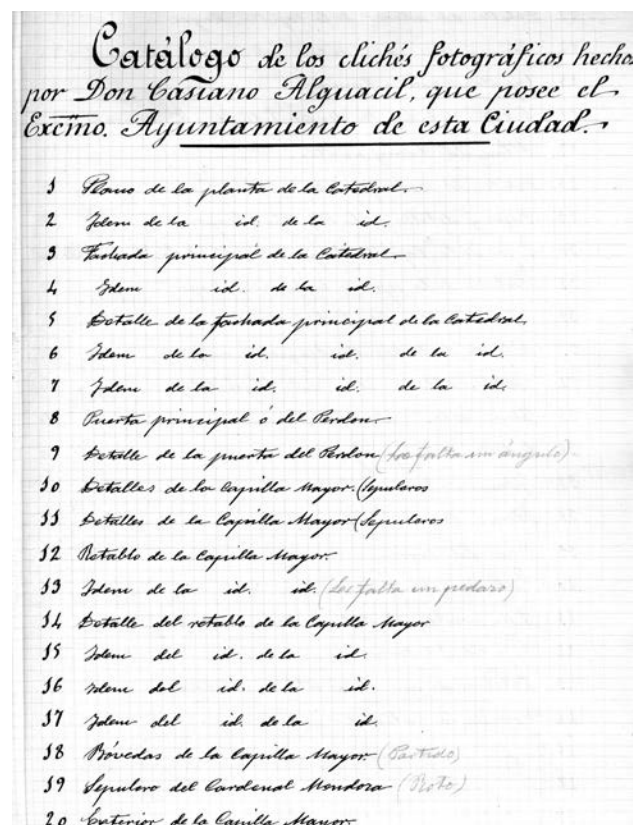 Catálogo de los clichés fotográficos hechos
por Don Casiano Alguacil, que posee el
Excmo. Ayuntamiento de esta Ciudad.
1 Plano de la planta de la Catedral.
2 Idem de la id. de la id.
3 Fachada principal de la Catedral
4 Idem id. de la id.
5 Detalle de la fachada principal de la Catedral
6 Idem de la id. id. de la id.
7 Idem de la id. id. de la id.
8 Puerta principal ó del Perdon.
9 Detalle de la puerta del Perdon (Le falta un ángulo).
10 Detalles de la Capilla Mayor. (Sepulcros
11 Detalles de la Capilla Mayor (Sepulcros
12 Retablo de la Capilla Mayor.
13 Idem de la id. id. (Le falta un pedazo)
14 Detalle del retablo de la Capilla Mayor
15 Idem del id. de la id.
16 Idem del id. de la id.
17 Idem del id. de la id.
18 Bóvedas de la Capilla Mayor. (Partido)
19 Sepulcro del Cardenal Mendoza (Roto)
20 Exterior de la Capilla Mayor.